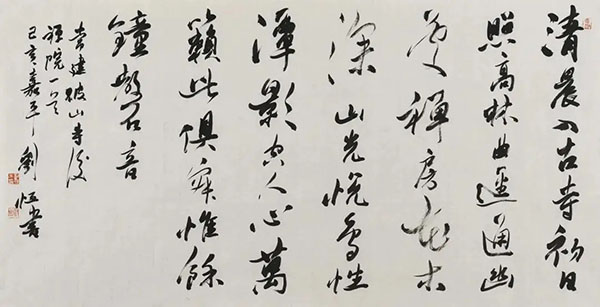 清晨入古寺初日
照高林曲逕通幽
處禪房花木
深山光悅鳥性
潭影空人心萬
籟此俱寂惟餘
鐘磬音
常建破山寺後
禪院一首
己亥嘉平劉恒書